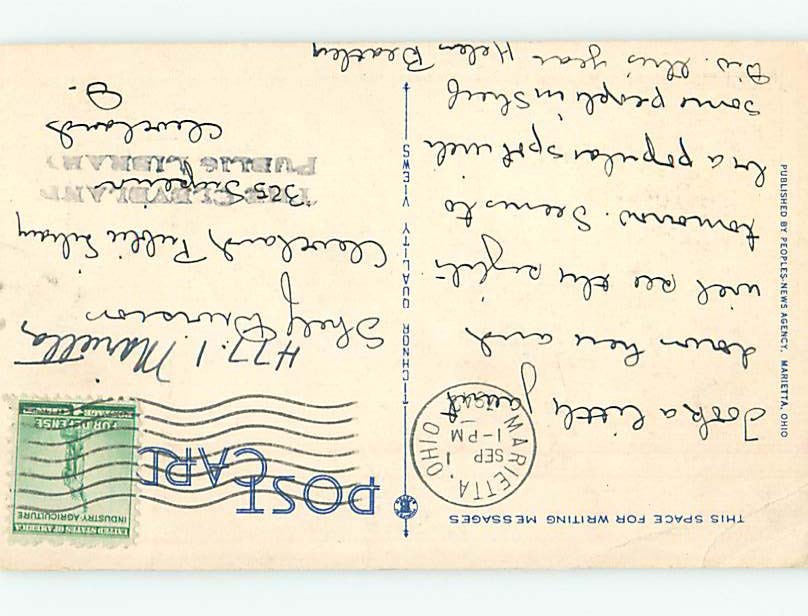 THIS SPACE FOR WRITING MESSAGES
POST CARD
UNITED STATES OF AMERICA
INDUSTRY AGRICULTURE
FOR DEFENSE
MARIETTA, OHIO
SEP 1
1-PM
Took a little jaunt
down here and
will see the sights
tomorrow. Seems to
be a popular spot with
some people in Shelf
Div. this year Helen Beatley
H77.1 Marietta
Shelf Division
Cleveland Public Library
325 Superior
THE CLEVELAND
PUBLIC LIBRARY
Cleveland
O.
TICHNOR QUALITY VIEWS
PUBLISHED BY PEOPLES-NEWS AGENCY, MARIETTA, OHIO